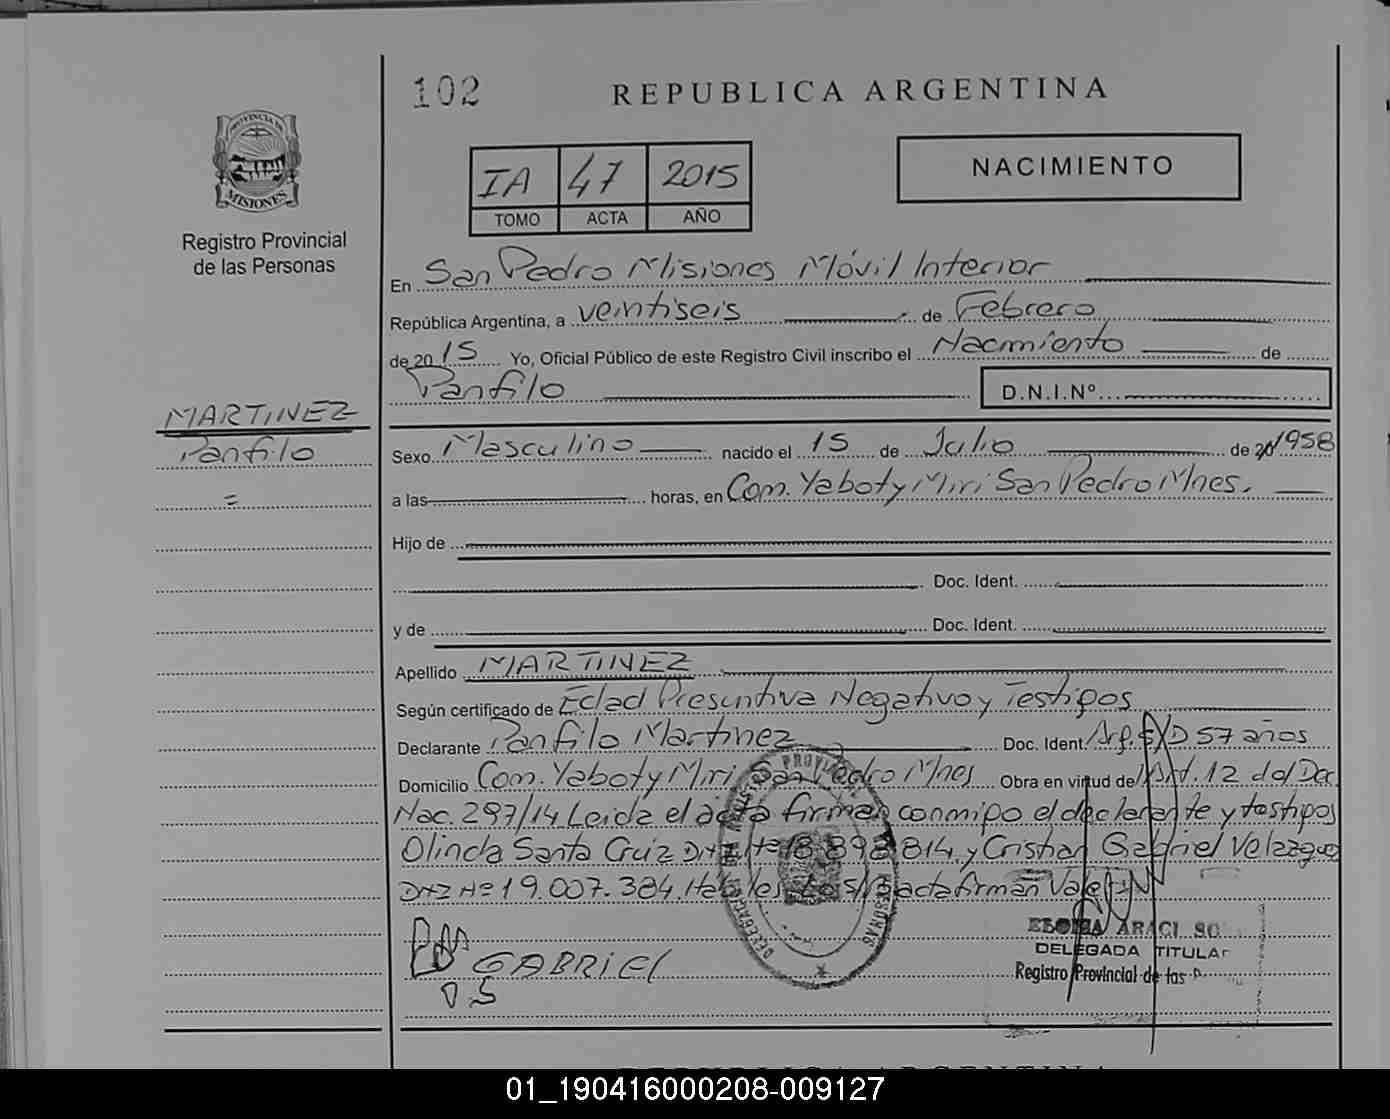 102
REPUBLICA ARGENTINA
PROVINCIA DE
MISIONES
Registro Provincial
de las Personas
IA 47 2015
TOMO ACTA AÑO
NACIMIENTO
En San Pedro Misiones Móvil Interior
República Argentina, a veintiseis de Febrero
de 2015 Yo, Oficial Público de este Registro Civil inscribo el Nacimiento de
Panfilo D.N.I.Nº
MARTINEZ
Panfilo
=
Sexo Masculino nacido el 15 de Julio de 20 1958
a las horas, en Com. Yaboty Miri San Pedro Mnes.
Hijo de
Doc. Ident.
y de Doc. Ident.
Apellido MARTINEZ
Según certificado de Edad Presuntiva Negativo y Testigos
Declarante Panfilo Martinez Doc. Ident. Arg. S/D 57 años
Domicilio Com. Yaboty Miri San Pedro Mnes Obra en virtud de Art. 12 del Dec.
Nac. 297/14 Leida el acta firman conmigo el declarante y testigos
Olinda Santa Cruz DNI Nº 18.898.814 y Cristhian Gabriel Velazquez
DNI Nº 19.007.384. Habiles acta firman Vale
GABRIEL
O S
REGISTRO PROVINCIAL
DELEGACION
PERSONAS
ARACI SO
DELEGADA TITULAR
Registro Provincial de las P
REPUBLICA ARGENTINA
01_190416000208-009127